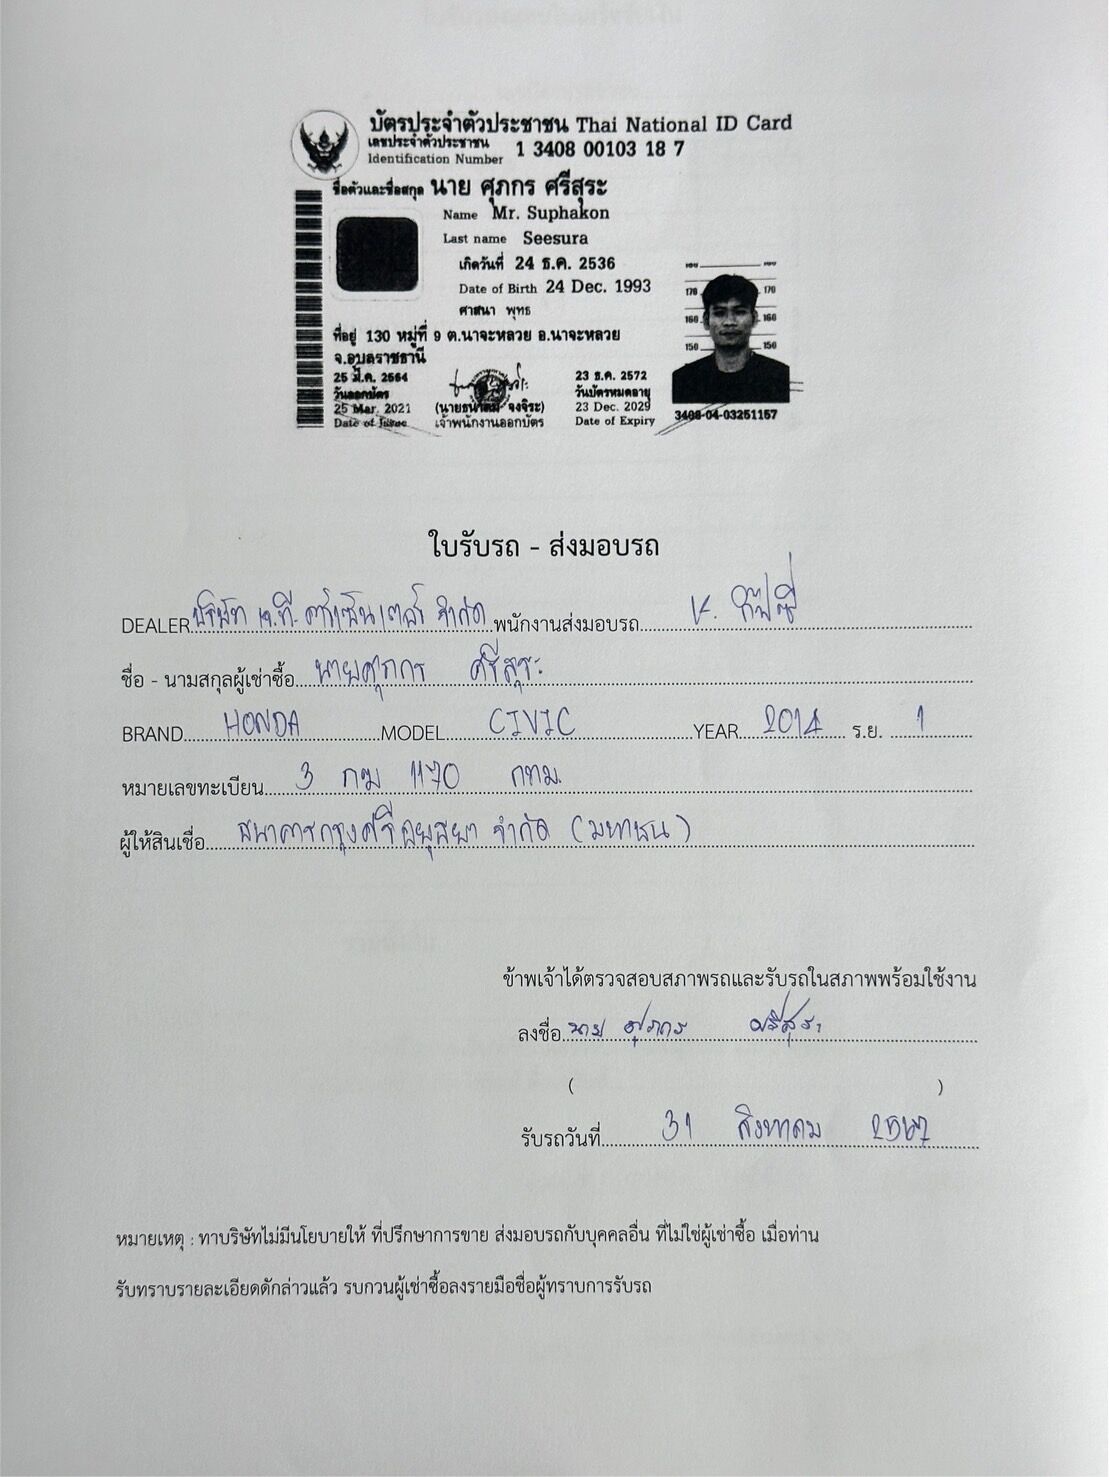 บัตรประจำตัวประชาชน Thai National ID Card
เลขประจำตัวประชาชน
Identification Number 1 3408 00103 18 7
ชื่อตัวและชื่อสกุล นาย ศุภกร ศรีสุระ
Name Mr. Suphakon
Last name Seesura
เกิดวันที่ 24 ธ.ค. 2536
Date of Birth 24 Dec. 1993
ศาสนา พุทธ
ที่อยู่ 130 หมู่ที่ 9 ต.นาจะหลวย อ.นาจะหลวย
จ.อุบลราชธานี
25 มี.ค. 2564
วันออกบัตร
25 Mar. 2021
Date of Issue
จงจิระ)
เจ้าพนักงานออกบัตร
23 ธ.ค. 2572
วันบัตรหมดอายุ
23 Dec. 2029
Date of Expiry
170 170
160 160
150 150
3408-04-03251157
ใบรับรถ - ส่งมอบรถ
DEALER บริษัท เจ.ที. จำกัด พนักงานส่งมอบรถ K.
ชื่อ - นามสกุลผู้เช่าซื้อ นายศุภกร ศรีสุระ
BRAND HONDA MODEL CIVIC YEAR 2014 ร.ย. 1
หมายเลขทะเบียน 3 กฆ 1170 กทม.
ผู้ให้สินเชื่อ ธนาคารกรุงศรีอยุธยา จำกัด (มหาชน)
ข้าพเจ้าได้ตรวจสอบสภาพรถและรับรถในสภาพพร้อมใช้งาน
ลงชื่อ นาย ศุภกร ศรีสุระ
( )
รับรถวันที่ 31 สิงหาคม 2567
หมายเหตุ : ทาบริษัทไม่มีนโยบายให้ ที่ปรึกษาการขาย ส่งมอบรถกับบุคคลอื่น ที่ไม่ใช่ผู้เช่าซื้อ เมื่อท่าน
รับทราบรายละเอียดดักล่าวแล้ว รบกวนผู้เช่าซื้อลงรายมือชื่อผู้ทราบการรับรถ